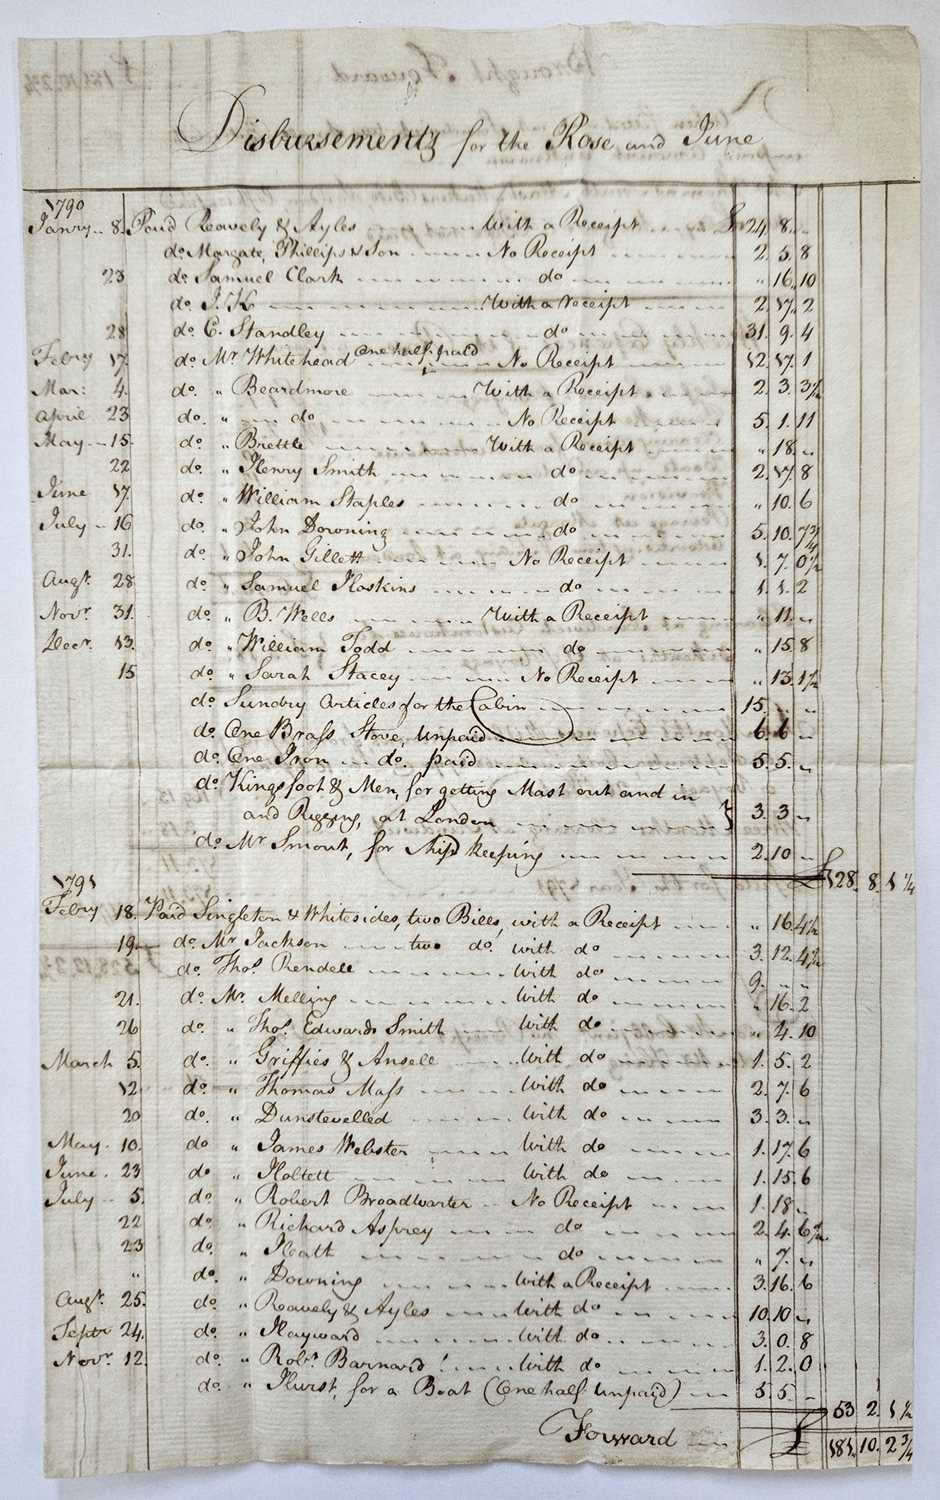 Disbursements for the Rose and June
1790
Janry 8. Paid Reavely & Ayles With a Receipt £24. 8. "
do. Margate, Phillips & Son No Receipt 2. 5. 8
23 do. Samuel Clark do " 16. 10
do. J. K With a receipt 2. 17. 2
28 do. C. Standley do 31. 9. 4
Febry 17. do. Mr. Whitehead One half paid No Receipt 12. 17. 1
Mar: 4. do. " Beardmore With a Receipt 2. 3. 3½
April 23 do. " do No Receipt 5. 1. 11
May 15. do. " Brettle With a Receipt " 18. "
22 do. " Henry Smith do 2. 17. 8
June 17 do. " William Staples do " 10. 6
July 16 do. " John Downing do 5. 10. 7¾
31. do. " John Gillett No Receipt 1. 7. 0½
Augt. 28 do. " Samuel Hoskins do 1. 1. 2
Novr. 31. do. " B. Wells With a Receipt " 11. "
Decr. 13. do. " William Todd do " 15. 8
15 do. " Sarah Stacey No Receipt " 13. 1½
do. Sundry Articles for the Cabin 15. " "
do. One Brass Stove, Unpaid 6. 6 "
do. One Iron do. paid 5. 5. "
do. Kingsfoot & Men, for getting Mast out and in
and Rigging, at London } 3. 3 "
do. Mr Smout, for Ship keeping 2. 10 "
£128. 8. 1¼
1791
Febry 18. Paid Singleton & Whitesides, two Bills, with a Receipt " 16. 4½
19 do. Mr Jackson two do. with do 3. 12. 4½
do. Thos. Rendell with do 9. " "
21. do. Mr. Melling with do " 16. 2
26 do. " Thos. Edwards Smith with do " 4. 10
March 5. do. " Griffies & Ansell With do 1. 5. 2
12 do. " Thomas Mass with do 2. 7. 6
20 do. " Dunstevelled with do 3. 3. "
May 10. do " James Webster With do 1. 17. 6
June 23 do " Holtett With do 1. 15. 6
July 5. do " Robert Broadwarter No Receipt 1. 18. "
22 do. " Richard Asprey do 2. 4. 6½
23 do. " Heath do " 7. "
" do. " Downing With a Receipt 3. 16. 6
Augt. 25. do. " Reavely & Ayles With do 10. 10 "
Septr 24. do. " Hayward With do 3. 0. 8
Novr. 12. do. " Robt. Barnard With do 1. 2. 0
do. " Hurst, for a Boat (One half Unpaid) 5. 5 "
53 2. 1½
Forward £ 181. 10. 2¾